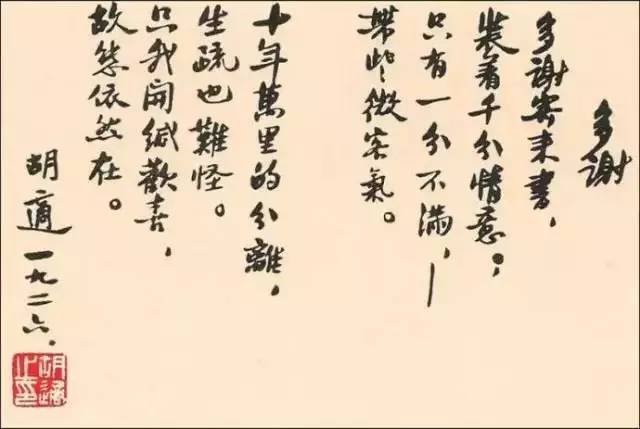 多謝
多謝寄来書，
裝着千分情意。
只有一分不滿，—
帶些微客氣。
十年萬里的分離，
生疏也難怪。
只我開緘歡喜，
故態依然在。
胡適 一九二六.
胡適之印